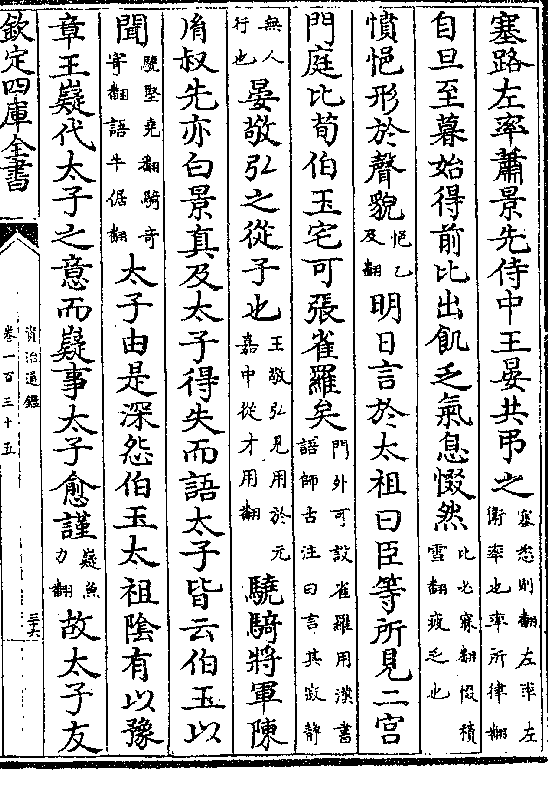 塞路左率蕭景先侍中王晏共弔之塞悉則翻左率左衛率也率所律翻
自旦至暮始得前比出飢乏氣息惙然比必寐翻惙積雪翻疲乏也
憤悒形於聲貌悒乙及翻明日言於太祖曰臣等所見二宮
門庭比荀伯玉宅可張雀羅矣門外可設雀羅用漢書語師古注曰言其寂静
無人行也晏敬弘之從子也王敬弘見用於元嘉中從才用翻驍騎將軍陳
胤叔先亦白景真及太子得失而語太子皆云伯玉以
聞驍堅堯翻騎奇寄翻語牛倨翻太子由是深怨伯玉太祖陰有以豫
章王嶷代太子之意而嶷事太子愈謹嶷魚力翻故太子友
欽定四庫全書
資治通鑑
卷一百三十五
三十六